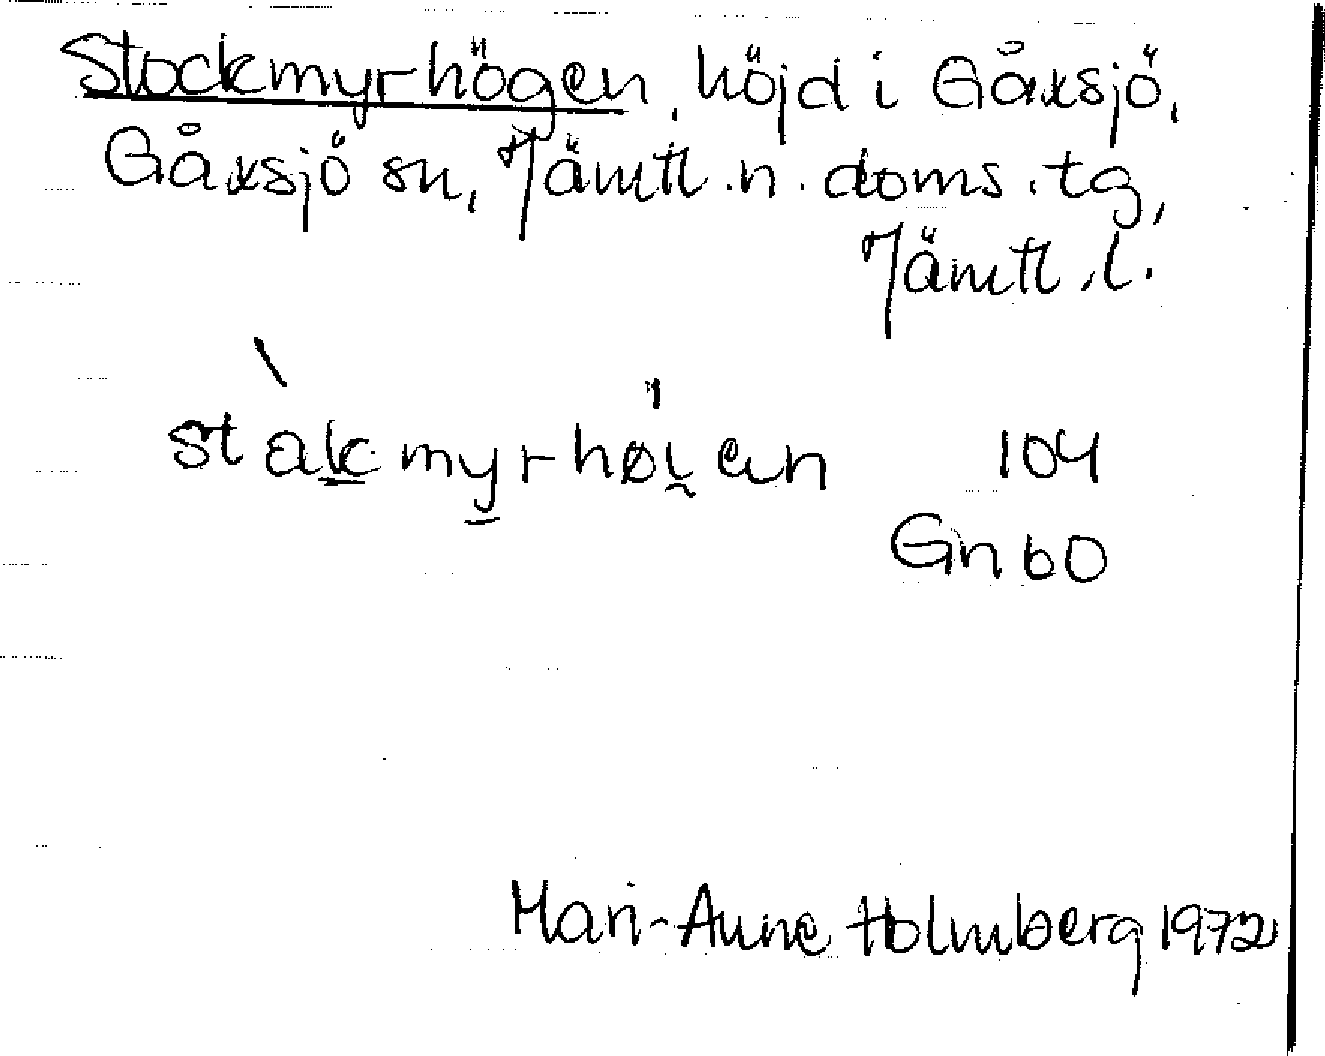 Stockmyrhögen, höjd i Gåxsjö,
Gåxsjö sn, Jämtl. n. doms. tg,
Jämtl. l.
stàkmyrhøi̯en 104
Gn 60
Mari-Anne Holmberg 1972